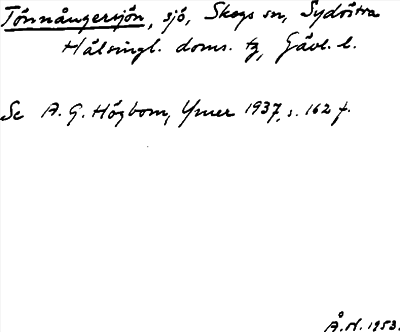 Tönnångersjön, sjö, Skogs sn, Sydöstra
Hälsingl. doms. tg, Gävl. l.
Se A. G. Högbom, Ymer 1937, s. 162 f.
Å. N. 1953.